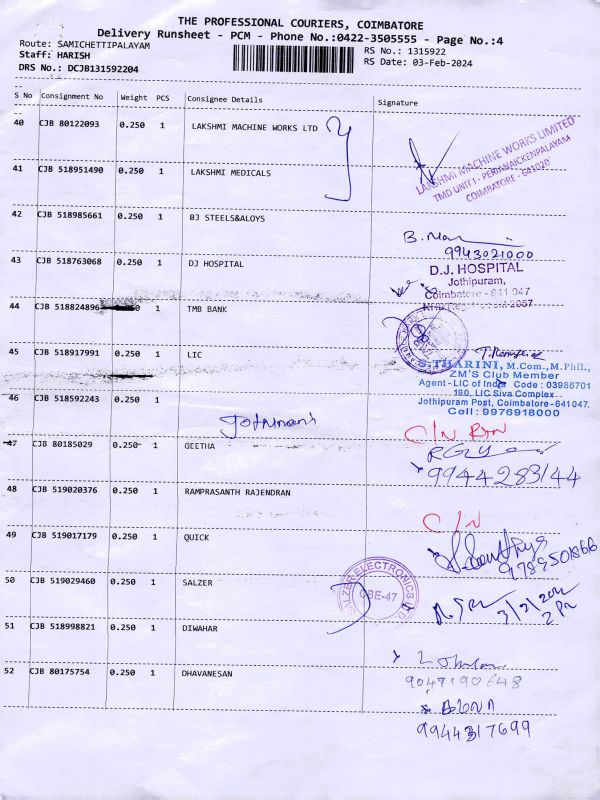 THE PROFESSIONAL COURIERS, COIMBATORE
Delivery Runsheet - PCM - Phone No.:0422-3505555 - Page No.:4
Route: SAMICHETTIPALAYAM
RS No.: 1315922
Staff: HARISH
RS Date: 03-Feb-2024
DRS No.: DCJB131592204
S No Consignment No Weight PCS Consignee Details Signature
40 CJB 80122093 0.250 1 LAKSHMI MACHINE WORKS LTD
LAKSHMI MACHINE WORKS LIMITED
TMD UNIT I - PERIANAICKENPALAYAM
COIMBATORE - 641020
41 CJB 518951490 0.250 1 LAKSHMI MEDICALS
42 CJB 518985661 0.250 1 BJ STEELS&ALOYS
9943021000
43 CJB 518763068 0.250 1 DJ HOSPITAL
D.J. HOSPITAL
Jothipuram,
Coimbatore - 641 047
44 CJB 518824896 0.250 1 TMB BANK
45 CJB 518917991 0.250 1 LIC
S THARINI, M.Com., M.Phil.,
ZM'S Club Member
Agent - LIC of India Code : 03986701
190, LIC Siva Complex
Jothipuram Post, Coimbatore-641047.
Cell : 9976916000
46 CJB 518592243 0.250 1
C/N
47 CJB 80185029 0.250 1 GEETHA
9944283144
48 CJB 519020376 0.250 1 RAMPRASANTH RAJENDRAN
C/N
49 CJB 519017179 0.250 1 QUICK
9789501866
50 CJB 519029460 0.250 1 SALZER
SALZER ELECTRONICS
CBE-47
51 CJB 518998821 0.250 1 DIWAHAR
9047190648
52 CJB 80175754 0.250 1 DHAVANESAN
9944317699